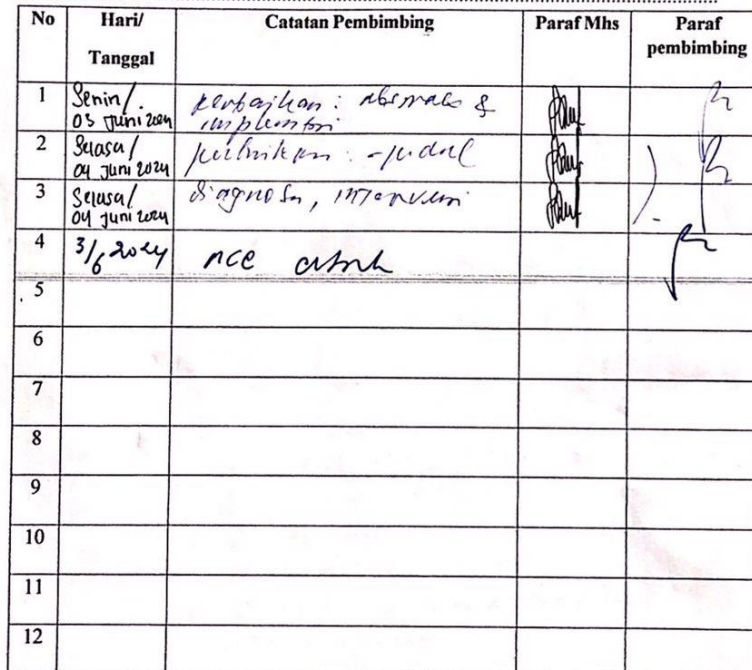 No Hari/ Tanggal Catatan Pembimbing Paraf Mhs Paraf pembimbing
1 Senin/ 03 Juni 2024 perbaikan: abstrak & implementasi
2 Selasa/ 04 Juni 2024 - judul
3 Selasa/ 04 Juni 2024 diagnosa, intervensi
4 3/6 2024 ACC
5
6
7
8
9
10
11
12